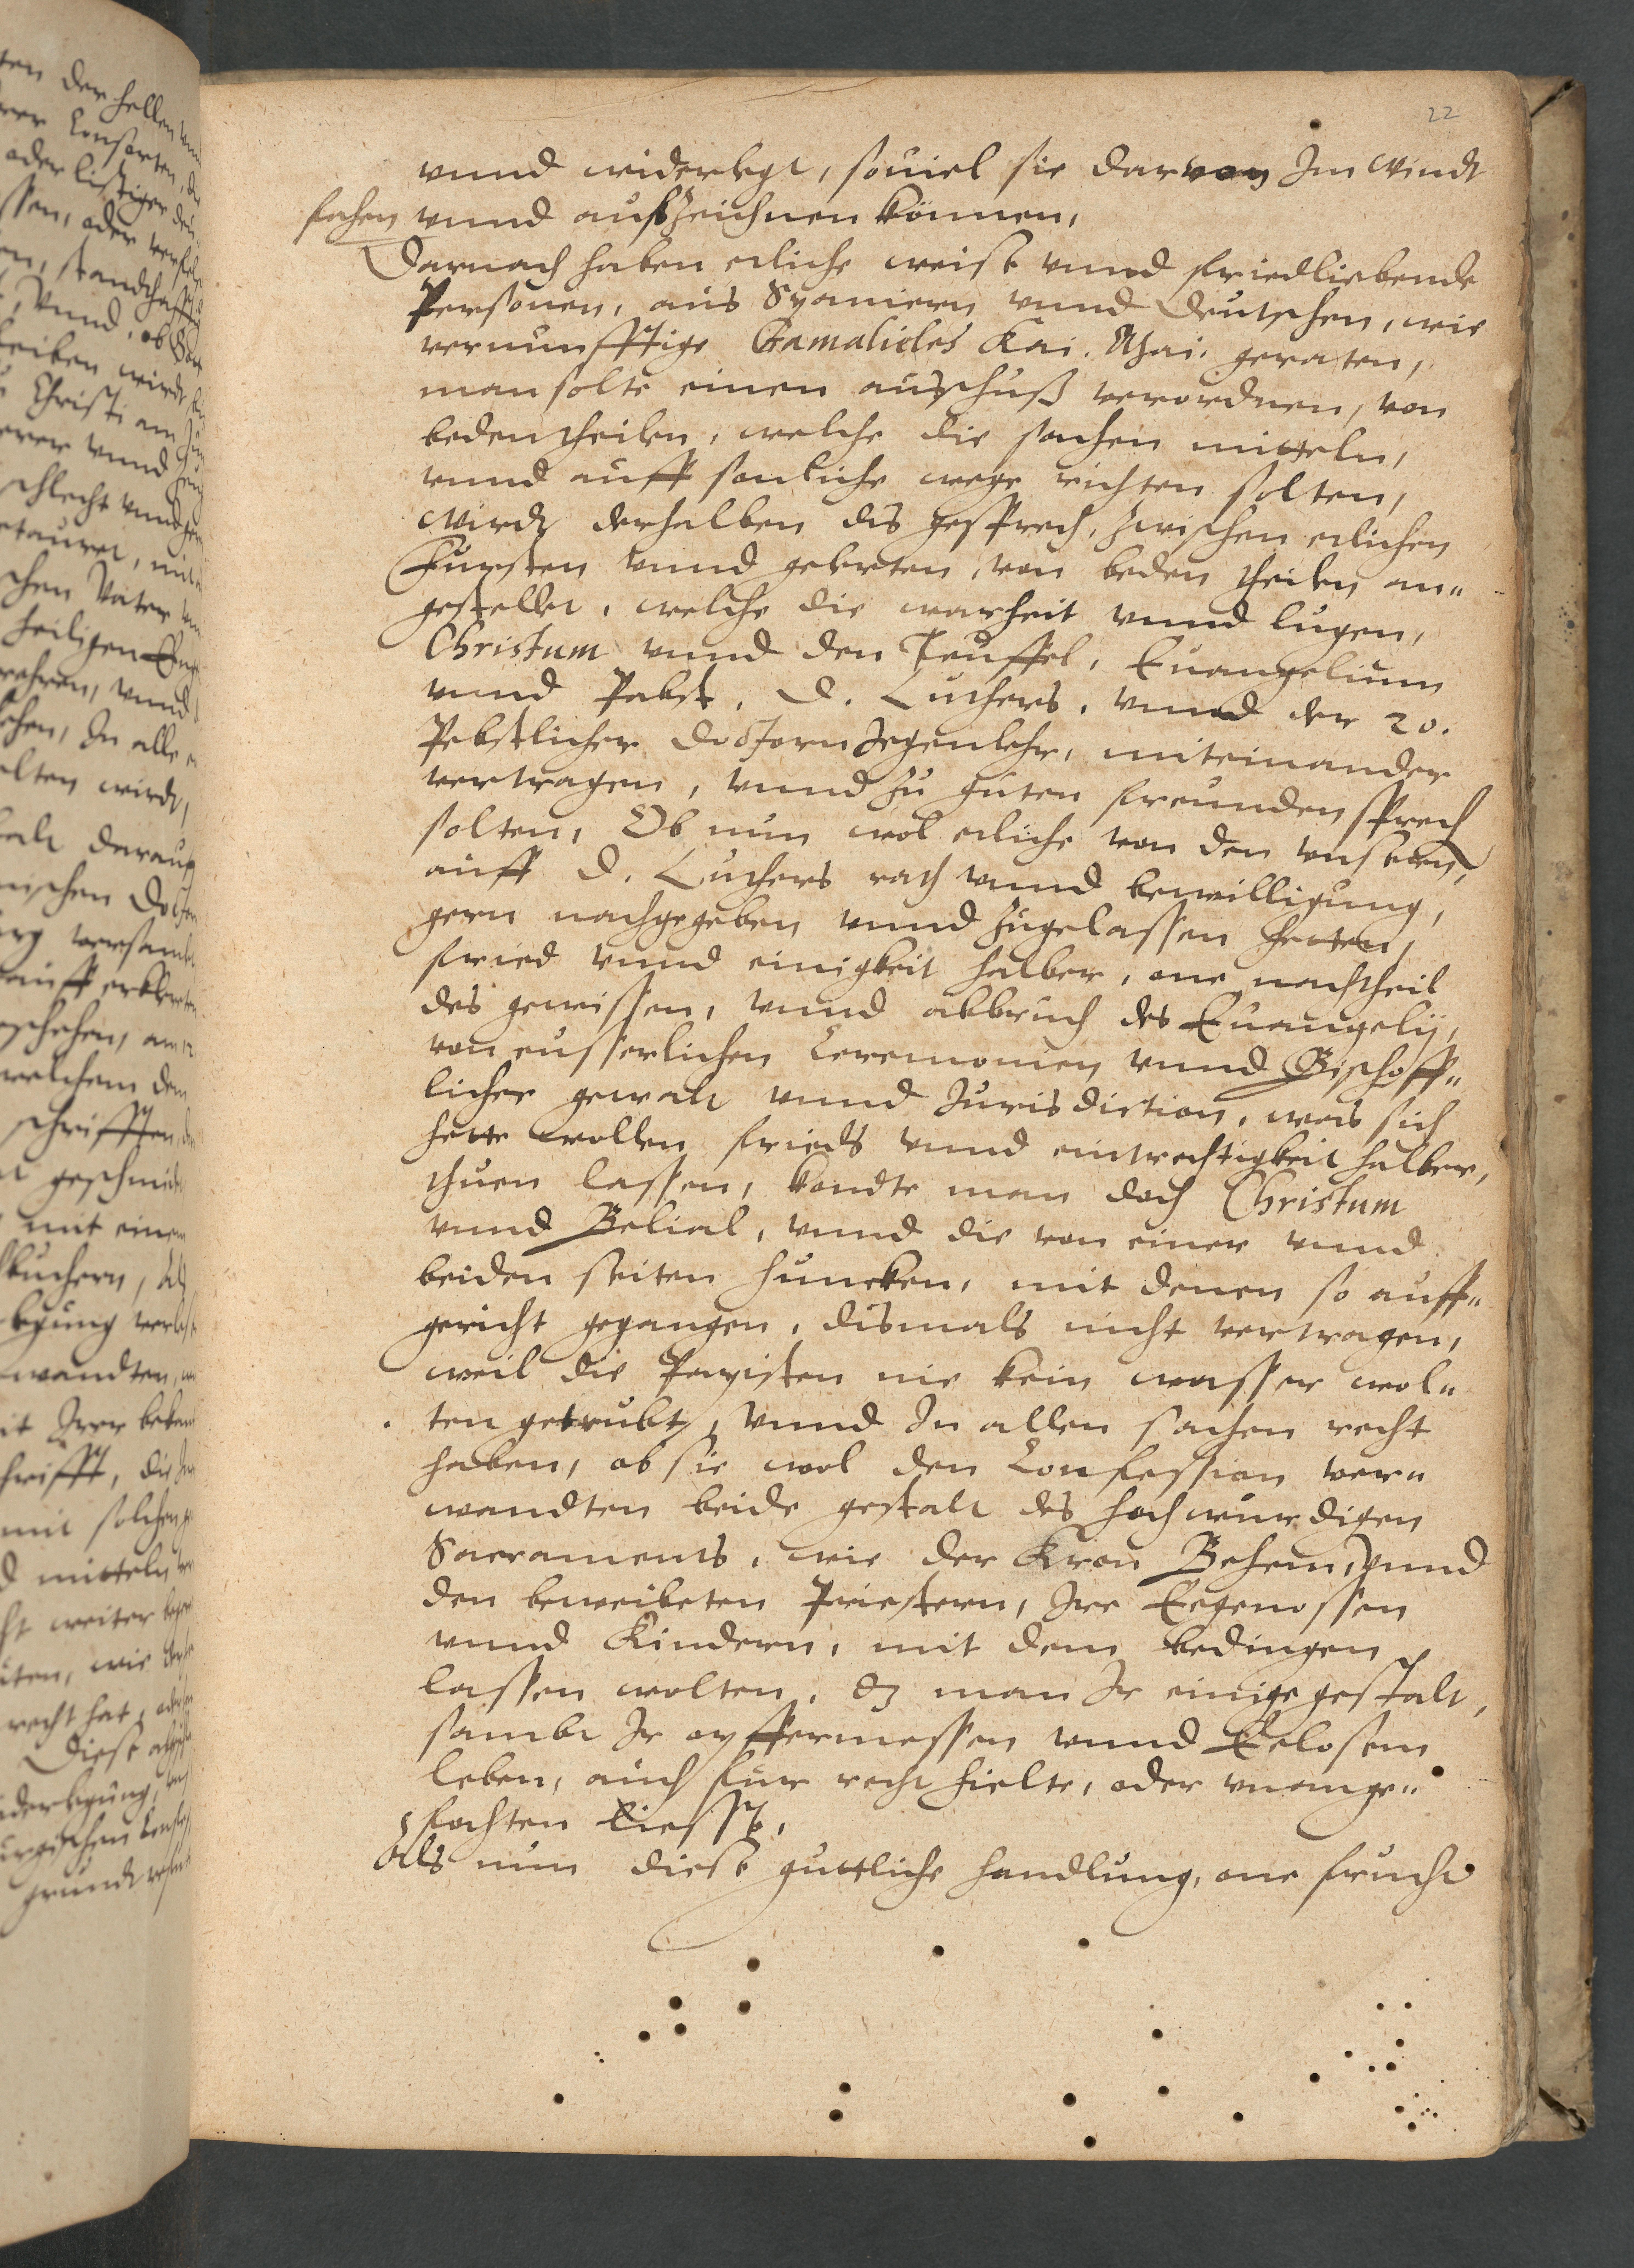 22
vnnd widerlegt, souiel sie daruon Im Windt
fahen vnnd außzeichnen können,
Darnach haben etliche weise vnnd friedliebende
Personen, aus Spaniern vnnd Deutschen, wie
vernunfftige Gamalieles Kai. Mai. geraten,
man solte einen ausschuß verordnen, von
beden theilen, welche die sachen mitteln,
vnnd auff sonliche wege richten solten,
Wirdt derhalben dis gesprech, zwischen etlichen
Fursten vnnd gelerten, von beden theilen an„
gestellet, welche die warheit vnnd lugen,
Christum vnnd den Teuffel, Euangelium
vnnd Pabst, D. Luthers, vnnd der 20.
Pebstlicher doctorn gegenlehr, miteinander
vertragen, vnnd zu guten freunden sprech
solten, Ob nun wol etliche von den vnsern,
auff D. Luthers rath vnnd bewilligung,
gern nachgegeben vnnd zugelassen hetten,
fried vnnd einigkeit halber, one nachtheil
des gewissen, vnnd abbruch des Euangelij,
von eusserlichen Ceremonien vnnd Bischoff„
licher gewalt vnnd Jurisdiction, was sich
hette wollen frieds vnnd eintrechtigkeit halber,
thuen lassen, kondte man doch Christum
vnnd Belial, vnnd die von einer vnnd
beiden seiten huncken, mit denen so auff„
gericht gegangen, dismals nicht vertragen,
weil die Papisten nie kein wasser wol„
ten getrubt, vnnd In allen sachen recht
haben, ob sie wol den Confession ver„
wandten beide gestalt des hochwurdigen
Sacraments, wie der Kron Behem, vnnd
den beweibeten Priestern, Ire Eegenossen
vnnd Kindern, mit dem bedingen
lassen wolten, dz man Ir einige gestalt,
sambt Ir opffermessen vnnd Eelosem
leben, auch fur recht hielte, oder vnange„
fochten liesse,
Als nun diese guttliche handlung, one frucht